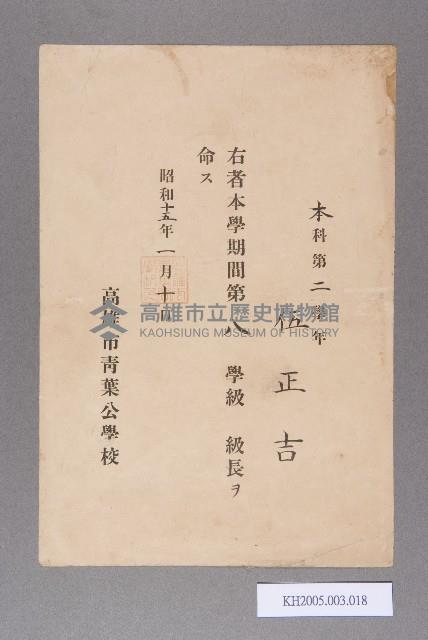 本科第二學年
伍正吉
右者本學期間第八學級級長ヲ
命ス
昭和十五年一月十日
高雄市青葉公學校
高雄市立歷史博物館
KAOHSIUNG MUSEUM OF HISTORY
KH2005.003.018